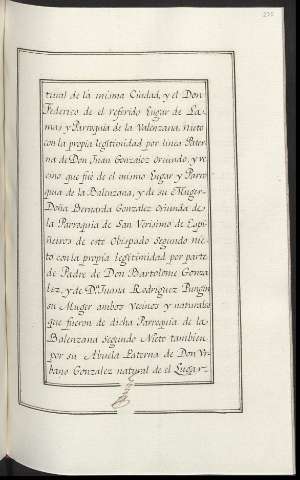 tural de la misma Ciudad, y el Don
Federico de el referido Lugar de La-
mas y Parroquia de la Valenzana, Nieto
con la propia legitimidad por linea Pater-
na de Don Juan Gonzalez Oriundo, y ve
cino que fué de el mismo Lugar y Parro
quia de la Balenzana, y de su Muger
Doña Bernarda Gonzalez Oriunda de
la Parroquia de San Verisimo de Espi-
ñeiros de este Obispado Segundo nie
to con la propia legitimidad por parte
de Padre de Don Bartolome Gonza
lez, y de Dª Juana Rodriguez Pungin
su Muger ambos Vecinos y naturales
que fueron de dicha Parroquia de la
Balenzana Segundo Nieto tambien
por su Abuela Paterna de Don Vr-
bano Gonzalez natural de el Lugar